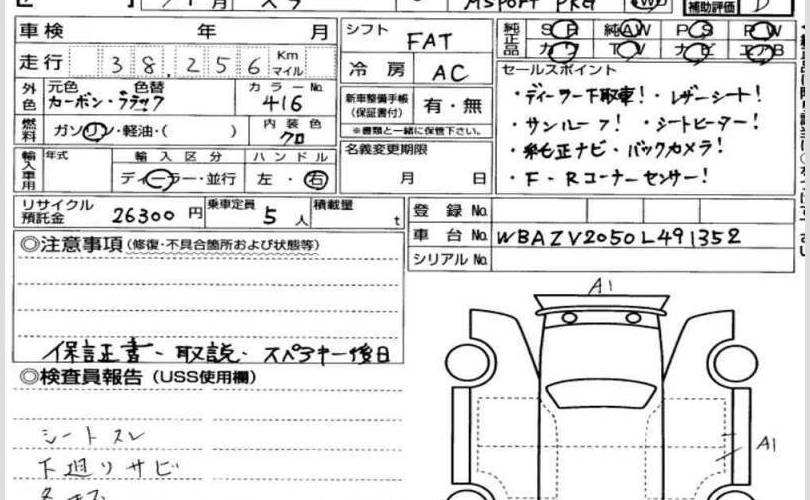 MSPORT PKG
補助評価 D
車検 年 月
シフト FAT
純正品 SH 純AW PS PW
カワ TV ナビ エアB
走行 38,256 Km マイル
冷房 AC
セールスポイント
外色 元色 色替 カラーNo.
カーボン・ブラック 416
新車整備手帳(保証書付) 有・無
※書類と一緒に保管下さい。
・ディーラー下取車!・レザーシート!
・サンルーフ!・シートヒーター!
・純正ナビ・バックカメラ!
・F・Rコーナーセンサー!
燃料 ガソリン・軽油・( ) 内装色 クロ
名義変更期限
月 日
輸入車用 年式 輸入区分 ハンドル
ディーラー・並行 左・右
リサイクル預託金 26300円 乗車定員 5人 積載量 t
登録No.
車台No. WBAZV2050L491352
シリアルNo.
◎注意事項(修復・不具合箇所および状態等)
保証書・取説・スペアキー後日
◎検査員報告(USS使用欄)
シートスレ
下廻りサビ
A1
A1